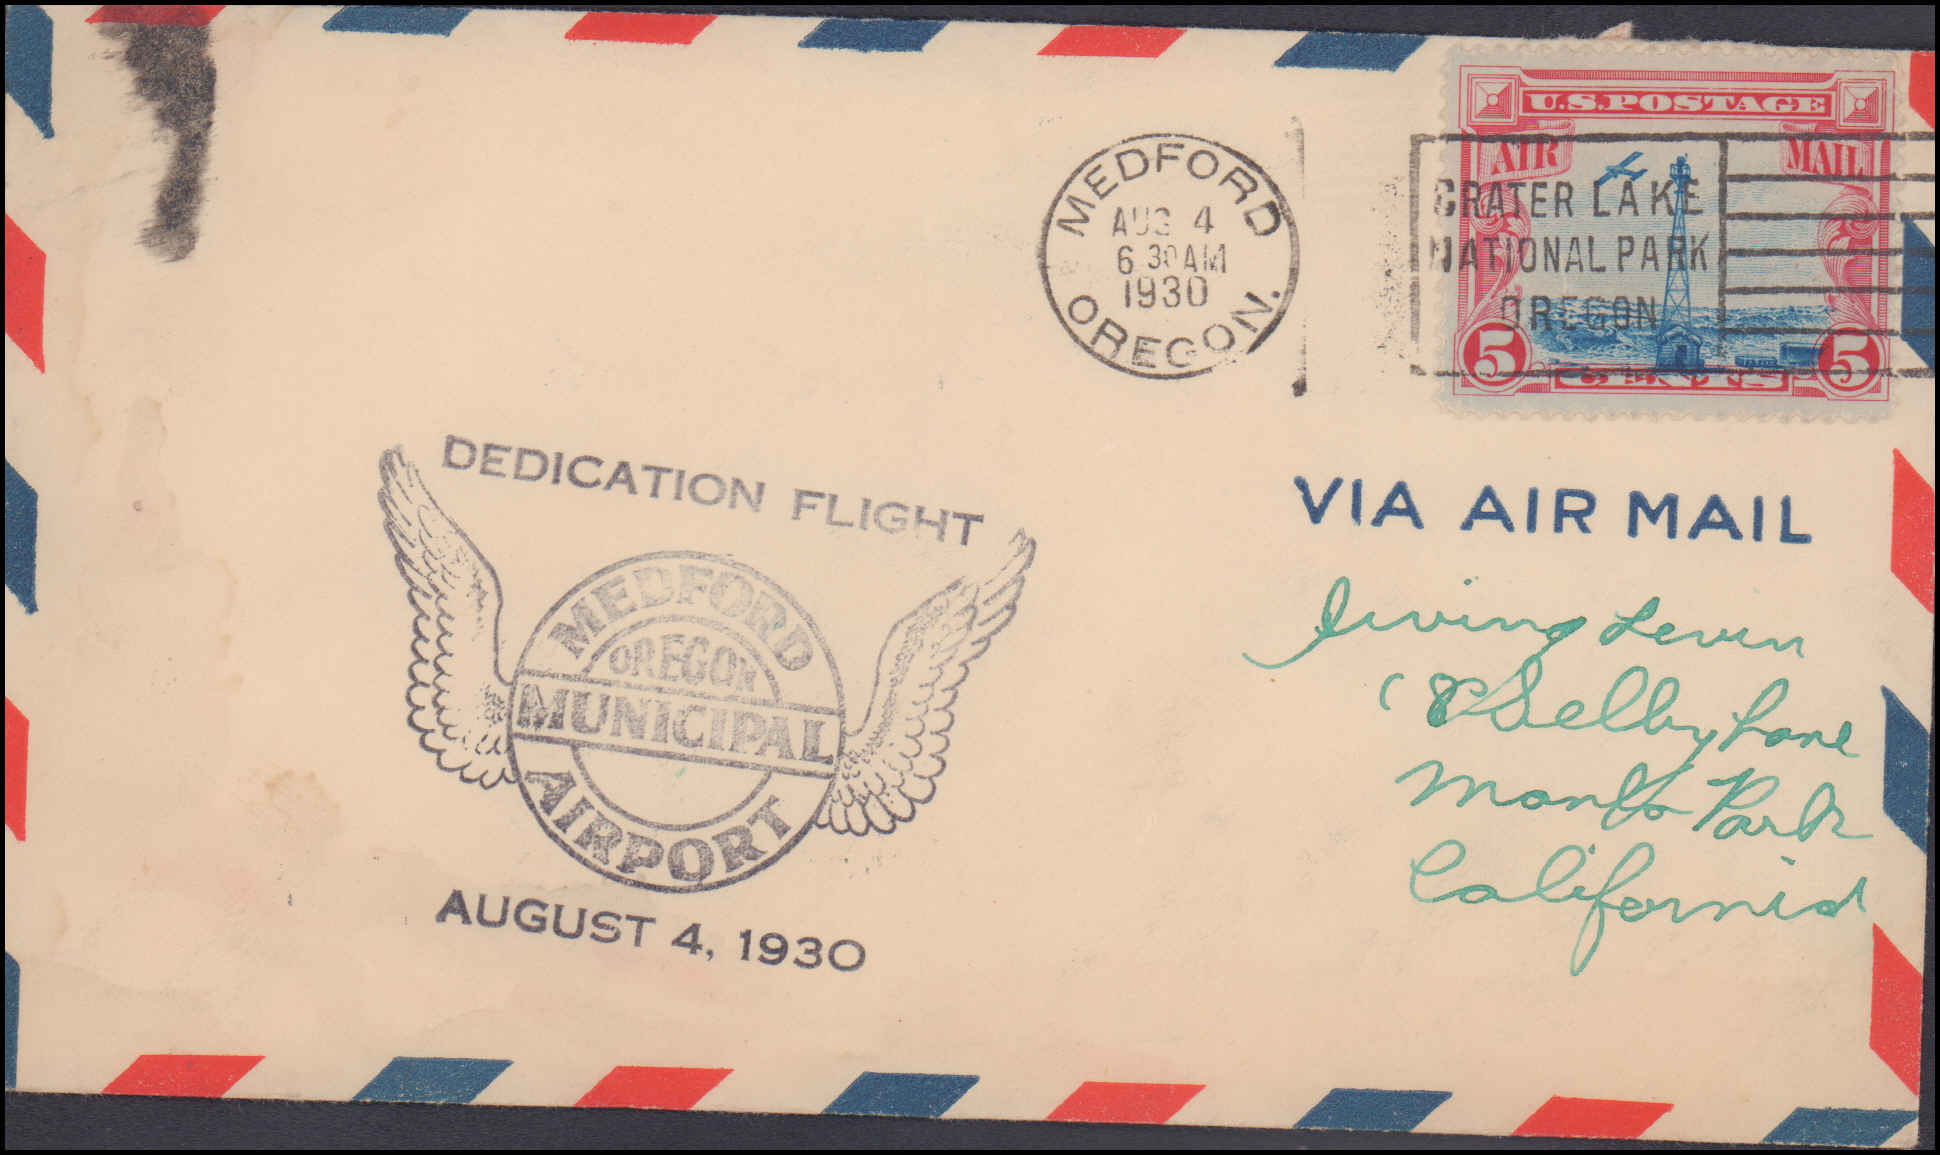 MEDFORD
AUG 4
6 30 AM
1930
OREGON.
U.S. POSTAGE
AIR MAIL
CRATER LAKE
NATIONAL PARK
OREGON
5 5
CENTS
DEDICATION FLIGHT
MEDFORD
OREGON
MUNICIPAL
AIRPORT
AUGUST 4, 1930
VIA AIR MAIL
Irving Levin
Selby Lane
Park
California